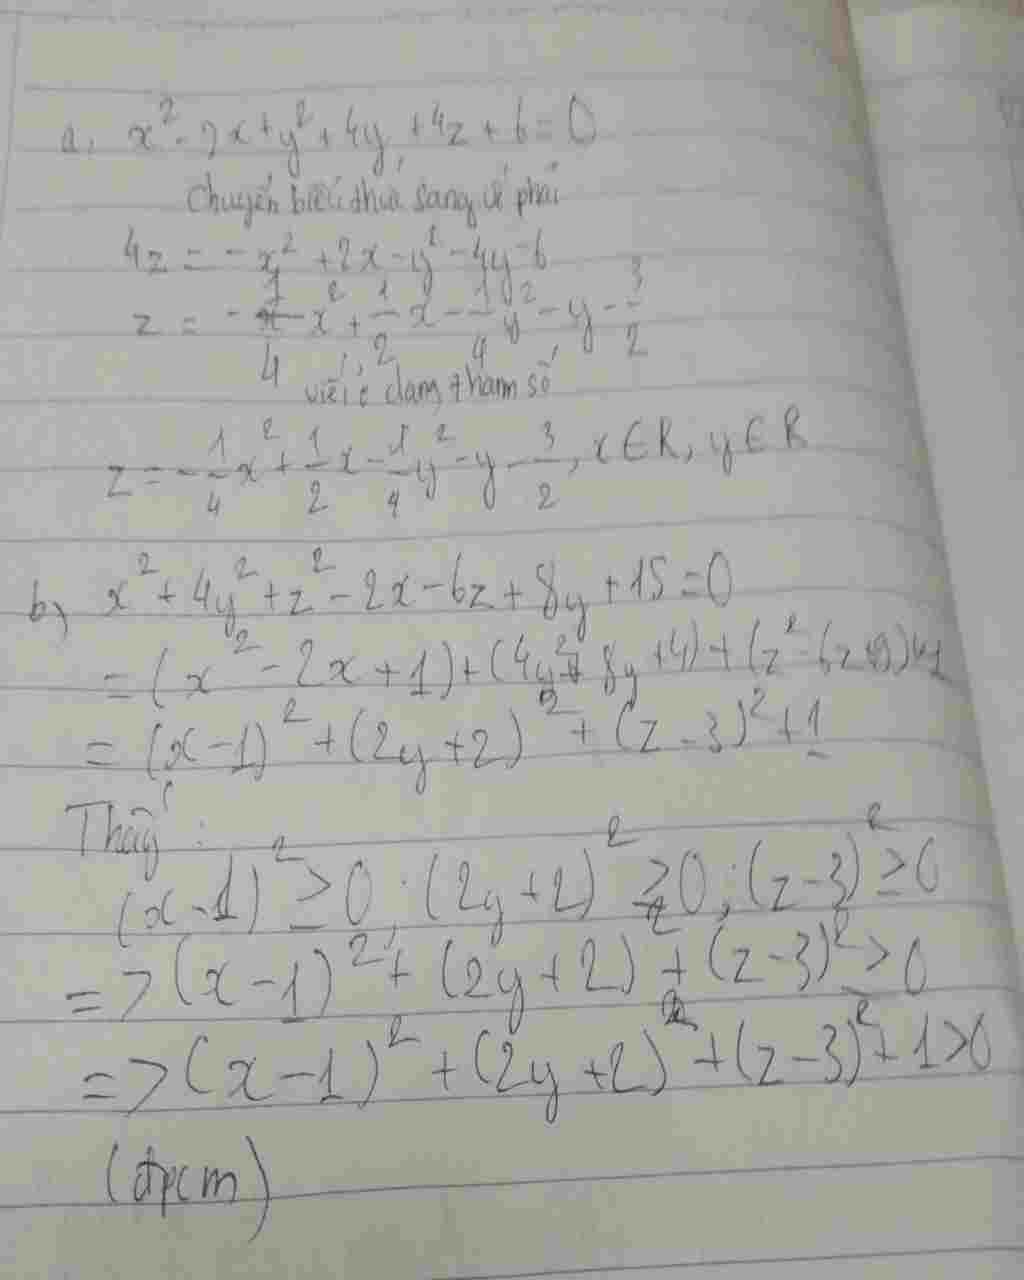 a, x² - 2x + y² + 4y + 4z + 6 = 0
Chuyển biểu thức sang vế phải
4z = -x² + 2x - y² - 4y - 6
z = -1/4 x² + 1/2 x - 1/4 y² - y - 3/2
viết ở dạng tham số
z = -1/4 x² + 1/2 x - 1/4 y² - y - 3/2, x ∈ R, y ∈ R
b) x² + 4y² + z² - 2x - 6z + 8y + 15 = 0
= (x² - 2x + 1) + (4y² + 8y + 4) + (z² - 6z + 9) + 1
= (x - 1)² + (2y + 2)² + (z - 3)² + 1
Thấy :
(x - 1)² ≥ 0 ; (2y + 2)² ≥ 0 ; (z - 3)² ≥ 0
=> (x - 1)² + (2y + 2)² + (z - 3)² ≥ 0
=> (x - 1)² + (2y + 2)² + (z - 3)² + 1 > 0
(đpcm)